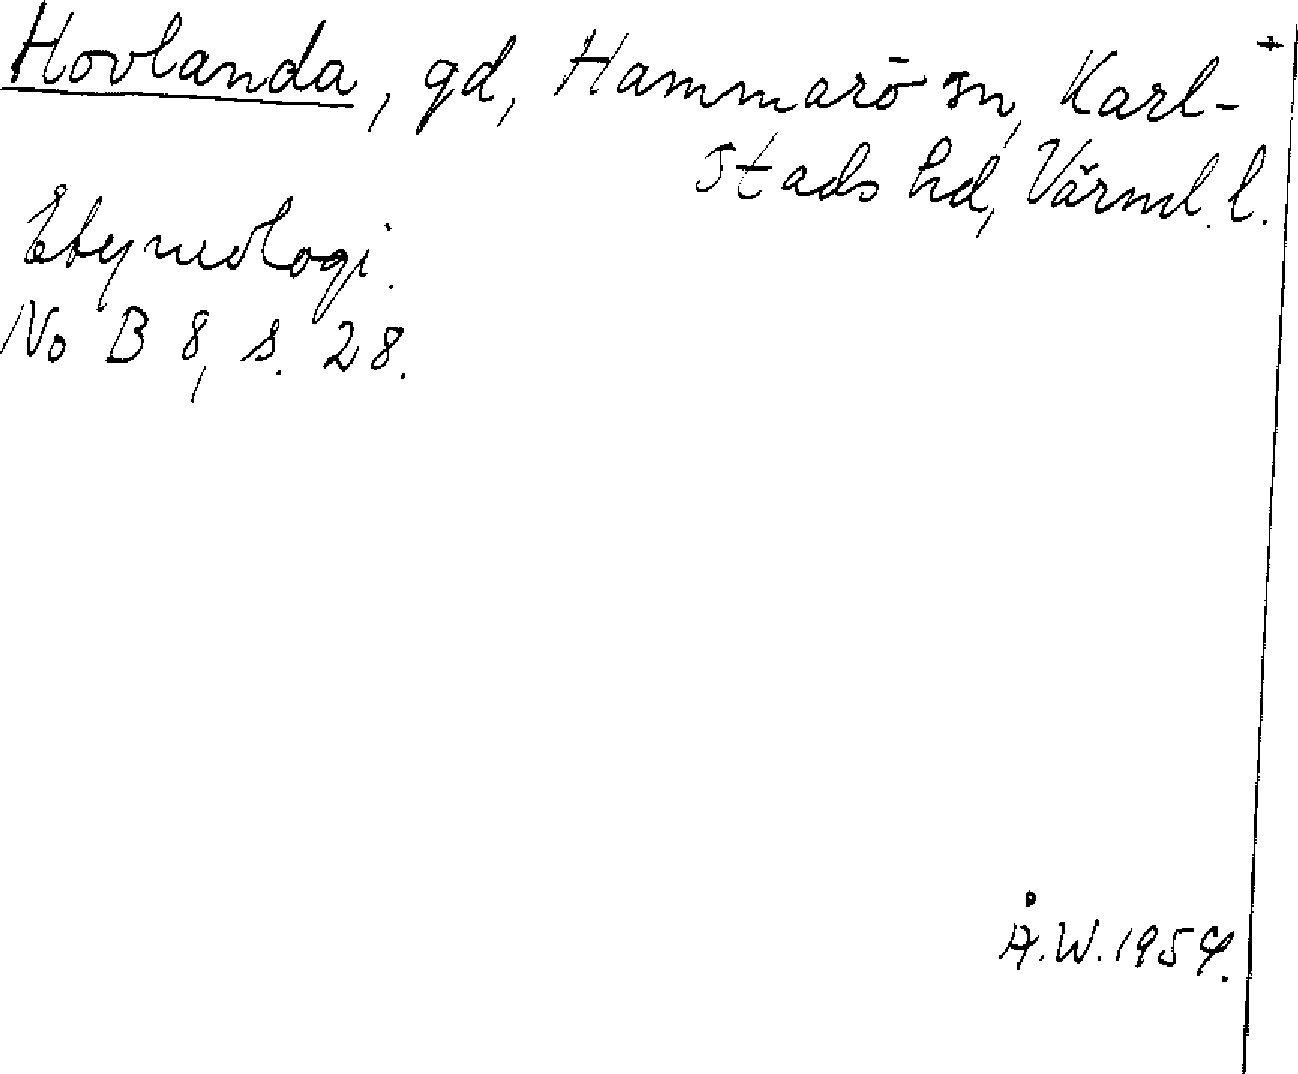 Hovlanda, gd, Hammarö sn, Karl-
stads hd, Värml. l.
Etymologi.
No B 8, s. 28.
Å.W. 1954.